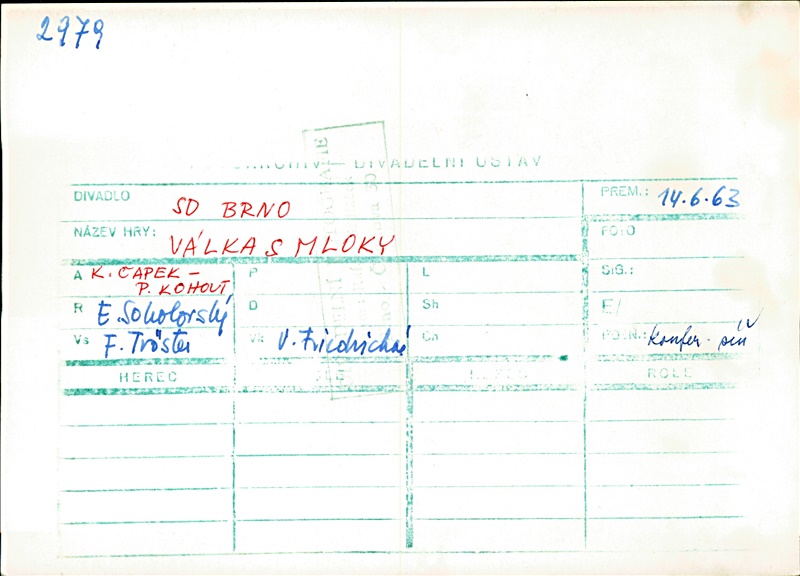 2979
DIVADELNÍ ÚSTAV
DIVADLO SD BRNO PREM.: 14.6.63
NÁZEV HRY: VÁLKA S MLOKY FOTO
A K. ČAPEK – P. KOHOUT P L SIG.:
R E. Sokolovský D Sh E/
Vs F. Tröster Vk V. Friedrichová Ch POZN.: Konfer. síň
HEREC ROLE